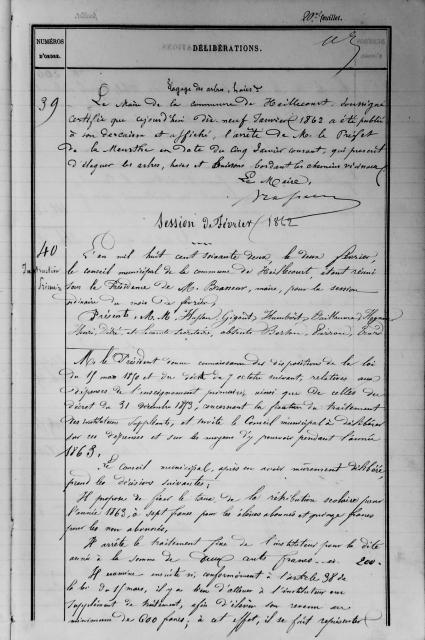 feuillet.
NUMÉROS D'ORDRE.
DÉLIBÉRATIONS.
39
Elagage des arbres, haies
Le Maire de la commune de Heillecourt, soussigné
certifie que cejourd'hui dix neuf Janvier 1862 a été publié
à son de caisse et affiché, l'arrêté de M. le Préfet
de la Meurthe en date du cinq Janvier courant, qui prescrit
d'élaguer les arbres, haies et buissons bordant les chemins vicinaux
Le Maire,
Session de Février 1862
40
Instruction
Primaire
L'an mil huit cent soixante deux, le deux février,
le conseil municipal de la commune de Heillecourt, étant réuni
sous la Présidence de M. Brasseur, maire, pour la session
ordinaire du mois de février,
Présents, M. M.
secrétaire, absents
M. le Président donne connaissance des dispositions de la loi
du 15 mars 1850 et du décret du 7 octobre suivant, relatives aux
dépenses de l'enseignement primaire, ainsi que de celles du
décret du 31 décembre 1853, concernant la fixation du traitement
des instituteurs suppléants, et invite le Conseil municipal à délibérer
sur ces dépenses et sur les moyens d'y pourvoir pendant l'année
1863.
Le Conseil municipal, après en avoir mûrement délibéré,
prend les décisions suivantes;
Il propose de fixer le taux de la rétribution scolaire pour
l'année 1863, à sept francs pour les élèves abonnés et francs
pour les non abonnés,
Il arrête le traitement fixe de l'instituteur pour la dite
année à la somme de deux cents francs ci 200
Il examine ensuite si, conformément à l'article 38 de
la loi du 15 mars, il y a lieu d'allouer à l'instituteur un
supplément de traitement, afin d'élever son revenu au
minimum de 600 francs; à cet effet, il se fait représenter